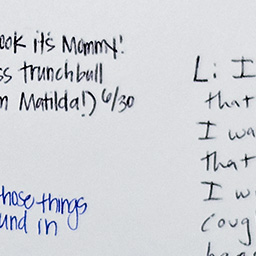 ook it's Mommy!
ss trunchbull
m Matilda!) 6/30
those things
und in
L: I
that
I wa
that
I w
coug